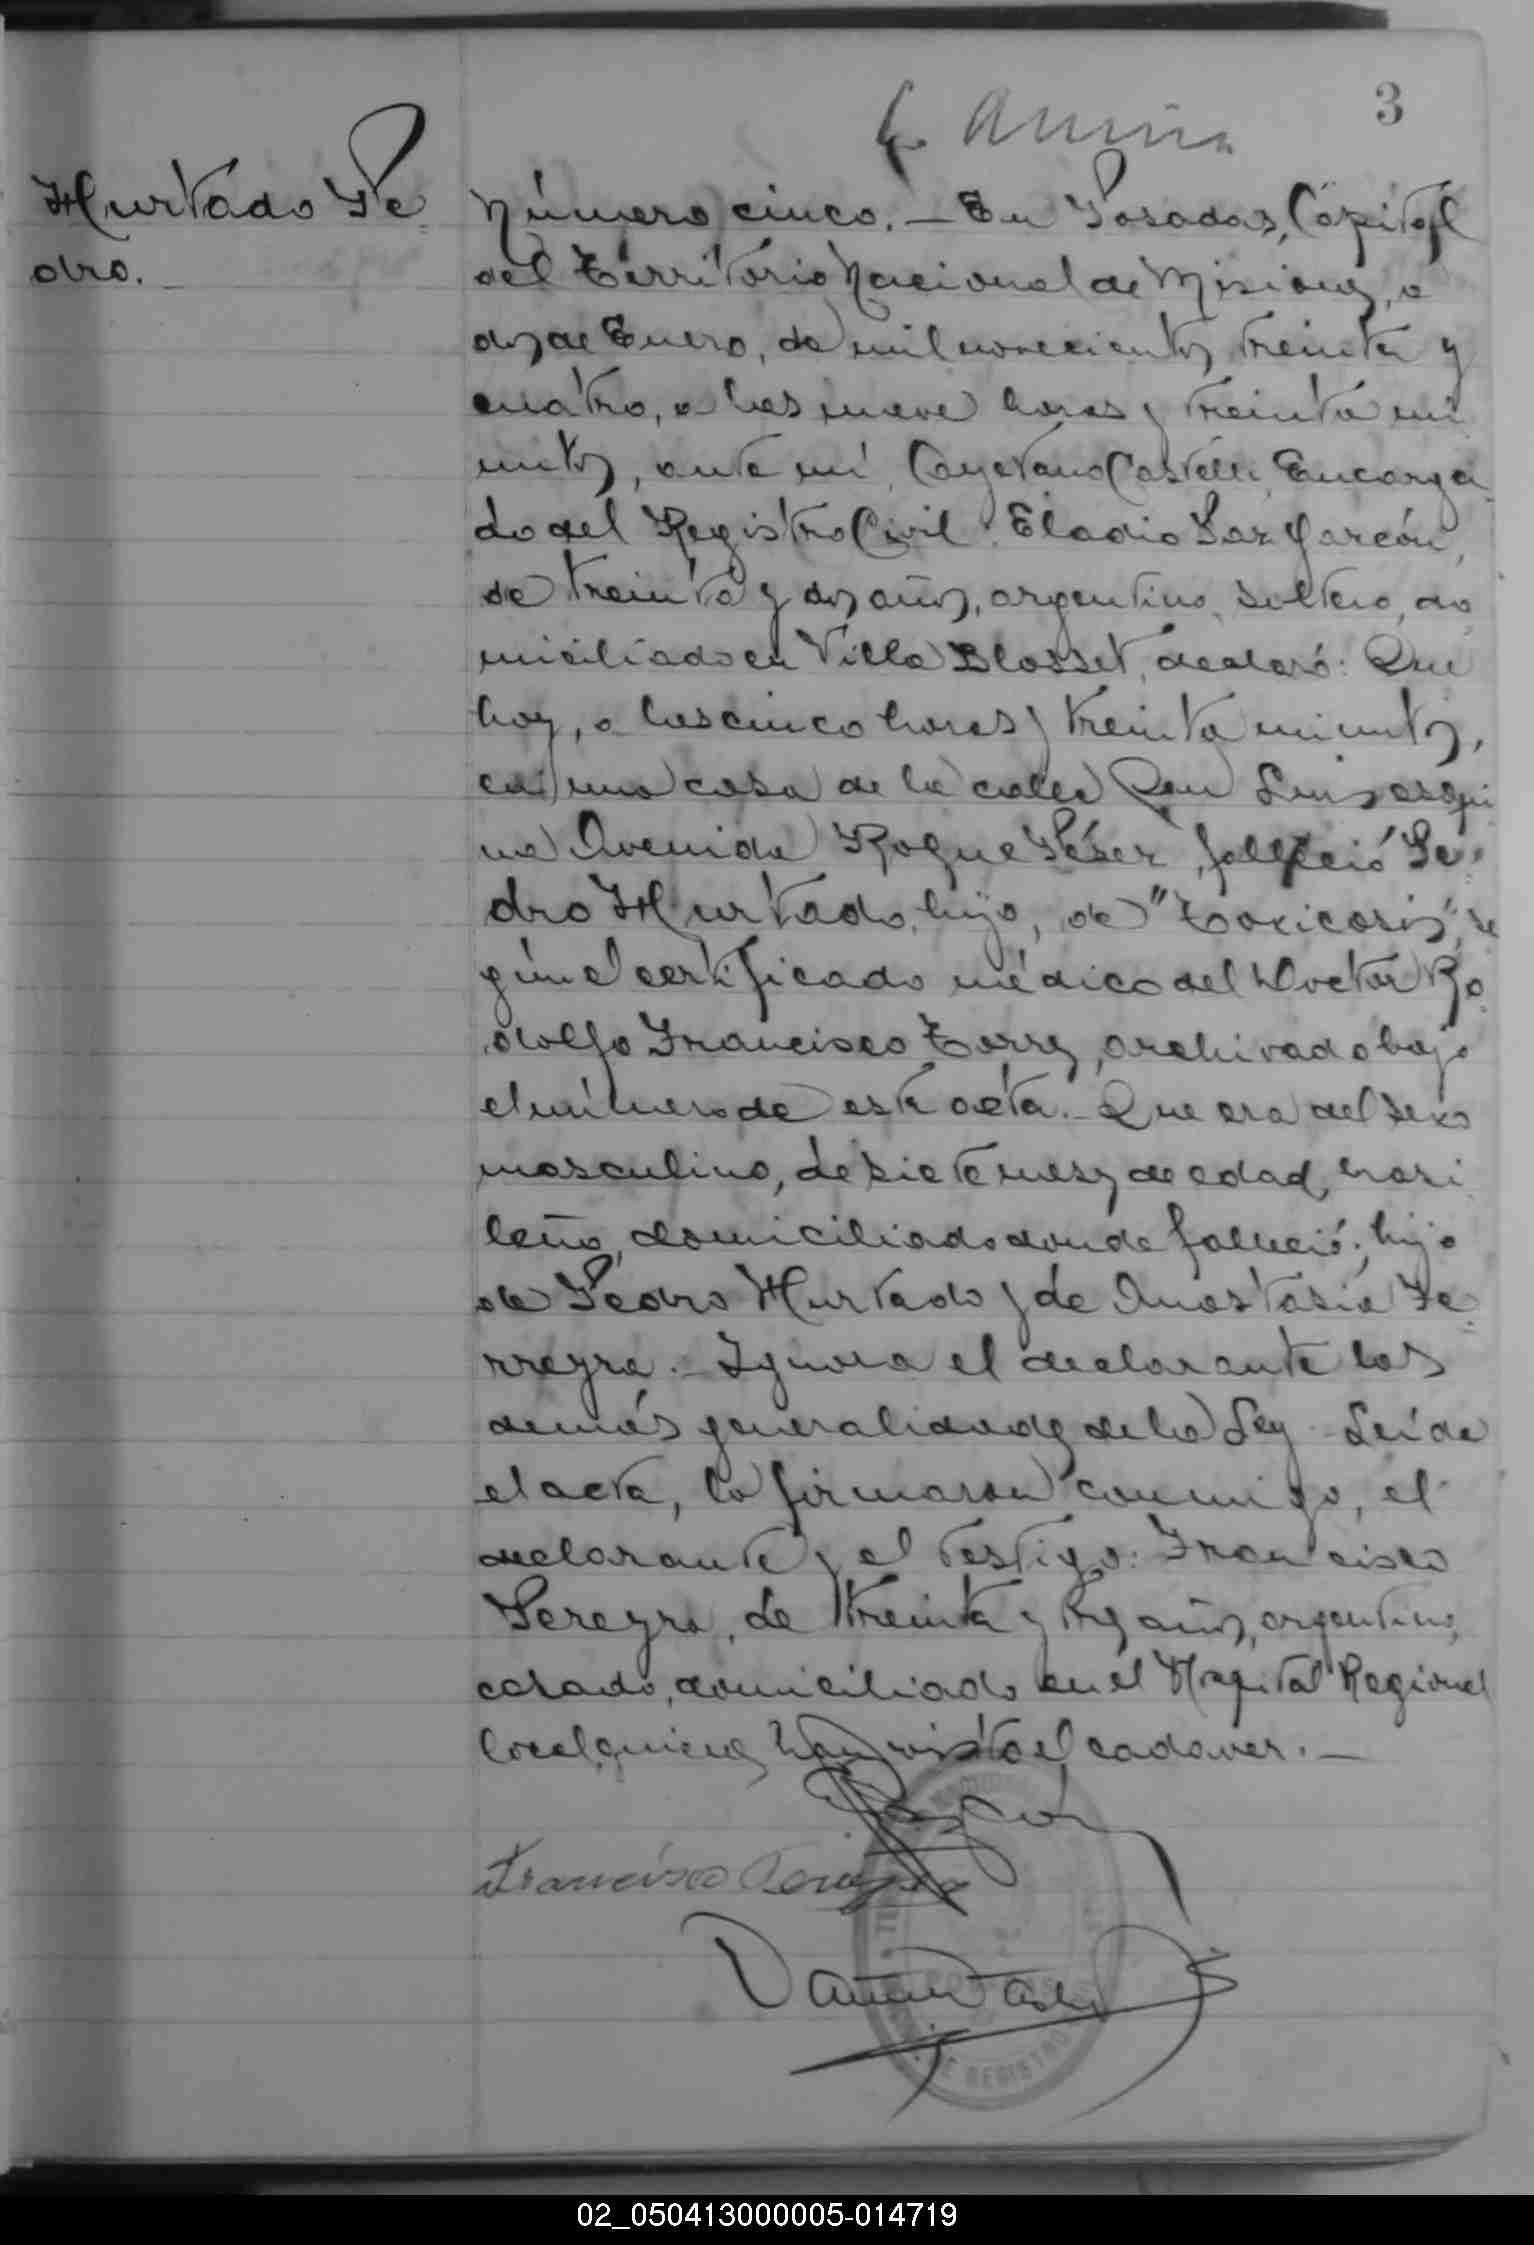 3
Hurtado Pe
dro.
Número cinco. — En Posadas, Capital
del Territorio Nacional de Misiones, a
dos de Enero, de mil novecientos treinta y
cuatro, a las nueve horas y treinta mi
nutos, ante mí, Cayetano Castelli, Encarga
do del Registro Civil. Eladio Paz Garzón,
de treinta y dos años, argentino, soltero, do
miciliado en Villa Blosset, declaró: Que
hoy, a las cinco horas y treinta minutos,
en una casa de la calle San Luis esqui
na Avenida Roque Pérez, falleció Pe-
dro Hurtado, hijo, de "Toxicosis", se
gún el certificado médico del Doctor Ro
dolfo Francisco Torres, archivado bajo
el número de esta acta. Que era del sexo
masculino, de siete meses de edad, brasi
leño, domiciliado donde falleció; hijo
de Pedro Hurtado y de Anastasia Fe
rreyra. Ignora el declarante las
demás generalidades de la Ley. Leída
el acta, la firmaron conmigo, el
declarante y el testigo: Francisco
Pereyra, de treinta y tres años, argentino,
casado, domiciliado en el Hospital Regional
local, quienes han visto el cadaver. —
Francisco Pereyra
DE REGISTRO
02_050413000005-014719